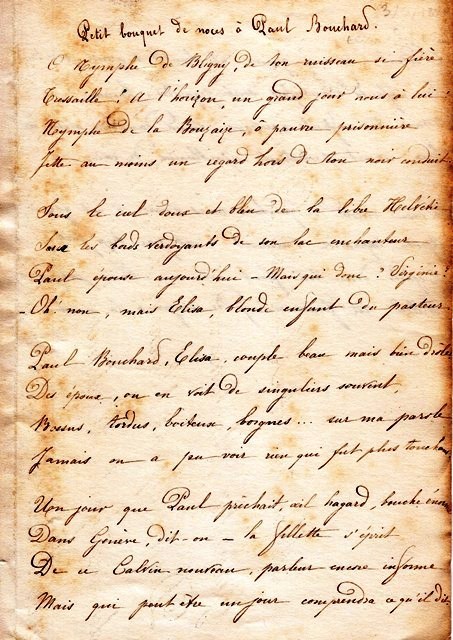 Petit bouquet de noces à Paul Bouchard.
O Nymphe de Bligny, de ton ruisseau si fière
Tressaille! A l'horizon, un grand jour nous a lui
Nymphe de la Bouzaize, ô pauvre prisonnière
Jette au moins un regard hors de ton noir conduit.
Sous le ciel doux et bleu de la libre Helvétie
Sur les bords verdoyants de son lac enchanteur
Paul épouse aujourd'hui - Mais qui donc? Virginie!
- Oh non, mais Elisa, blonde enfant du pasteur
Paul Bouchard, Elisa, couple beau mais bien drôle
Des époux, on en voit de singuliers souvent,
Bossus, tordus, boiteux, borgnes... sur ma parole
Jamais on a pu voir rien qui fut plus
Un jour que Paul prêchait, œil hagard, bouche
Dans Genève, dit-on - la fillette s'éprit
De ce Calvin nouveau, parleur encore informe
Mais qui peut être un jour comprendra ce qu'il dit